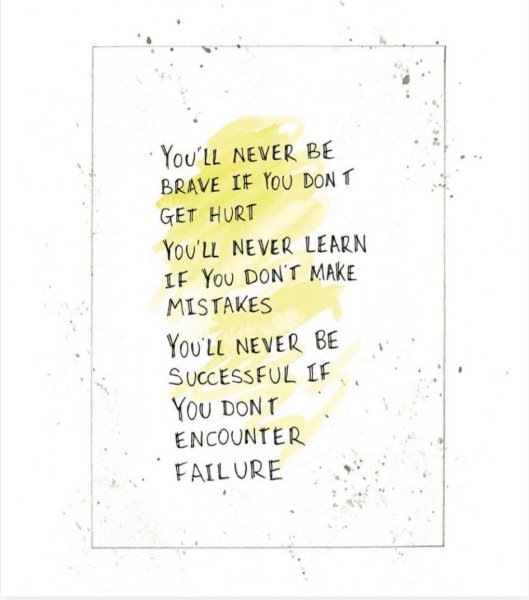 YOU'LL NEVER BE
BRAVE IF YOU DON T
GET HURT
YOU'LL NEVER LEARN
IF YOU DON'T MAKE
MISTAKES
YOU'LL NEVER BE
SUCCESSFUL IF
YOU DONT
ENCOUNTER
FAILURE